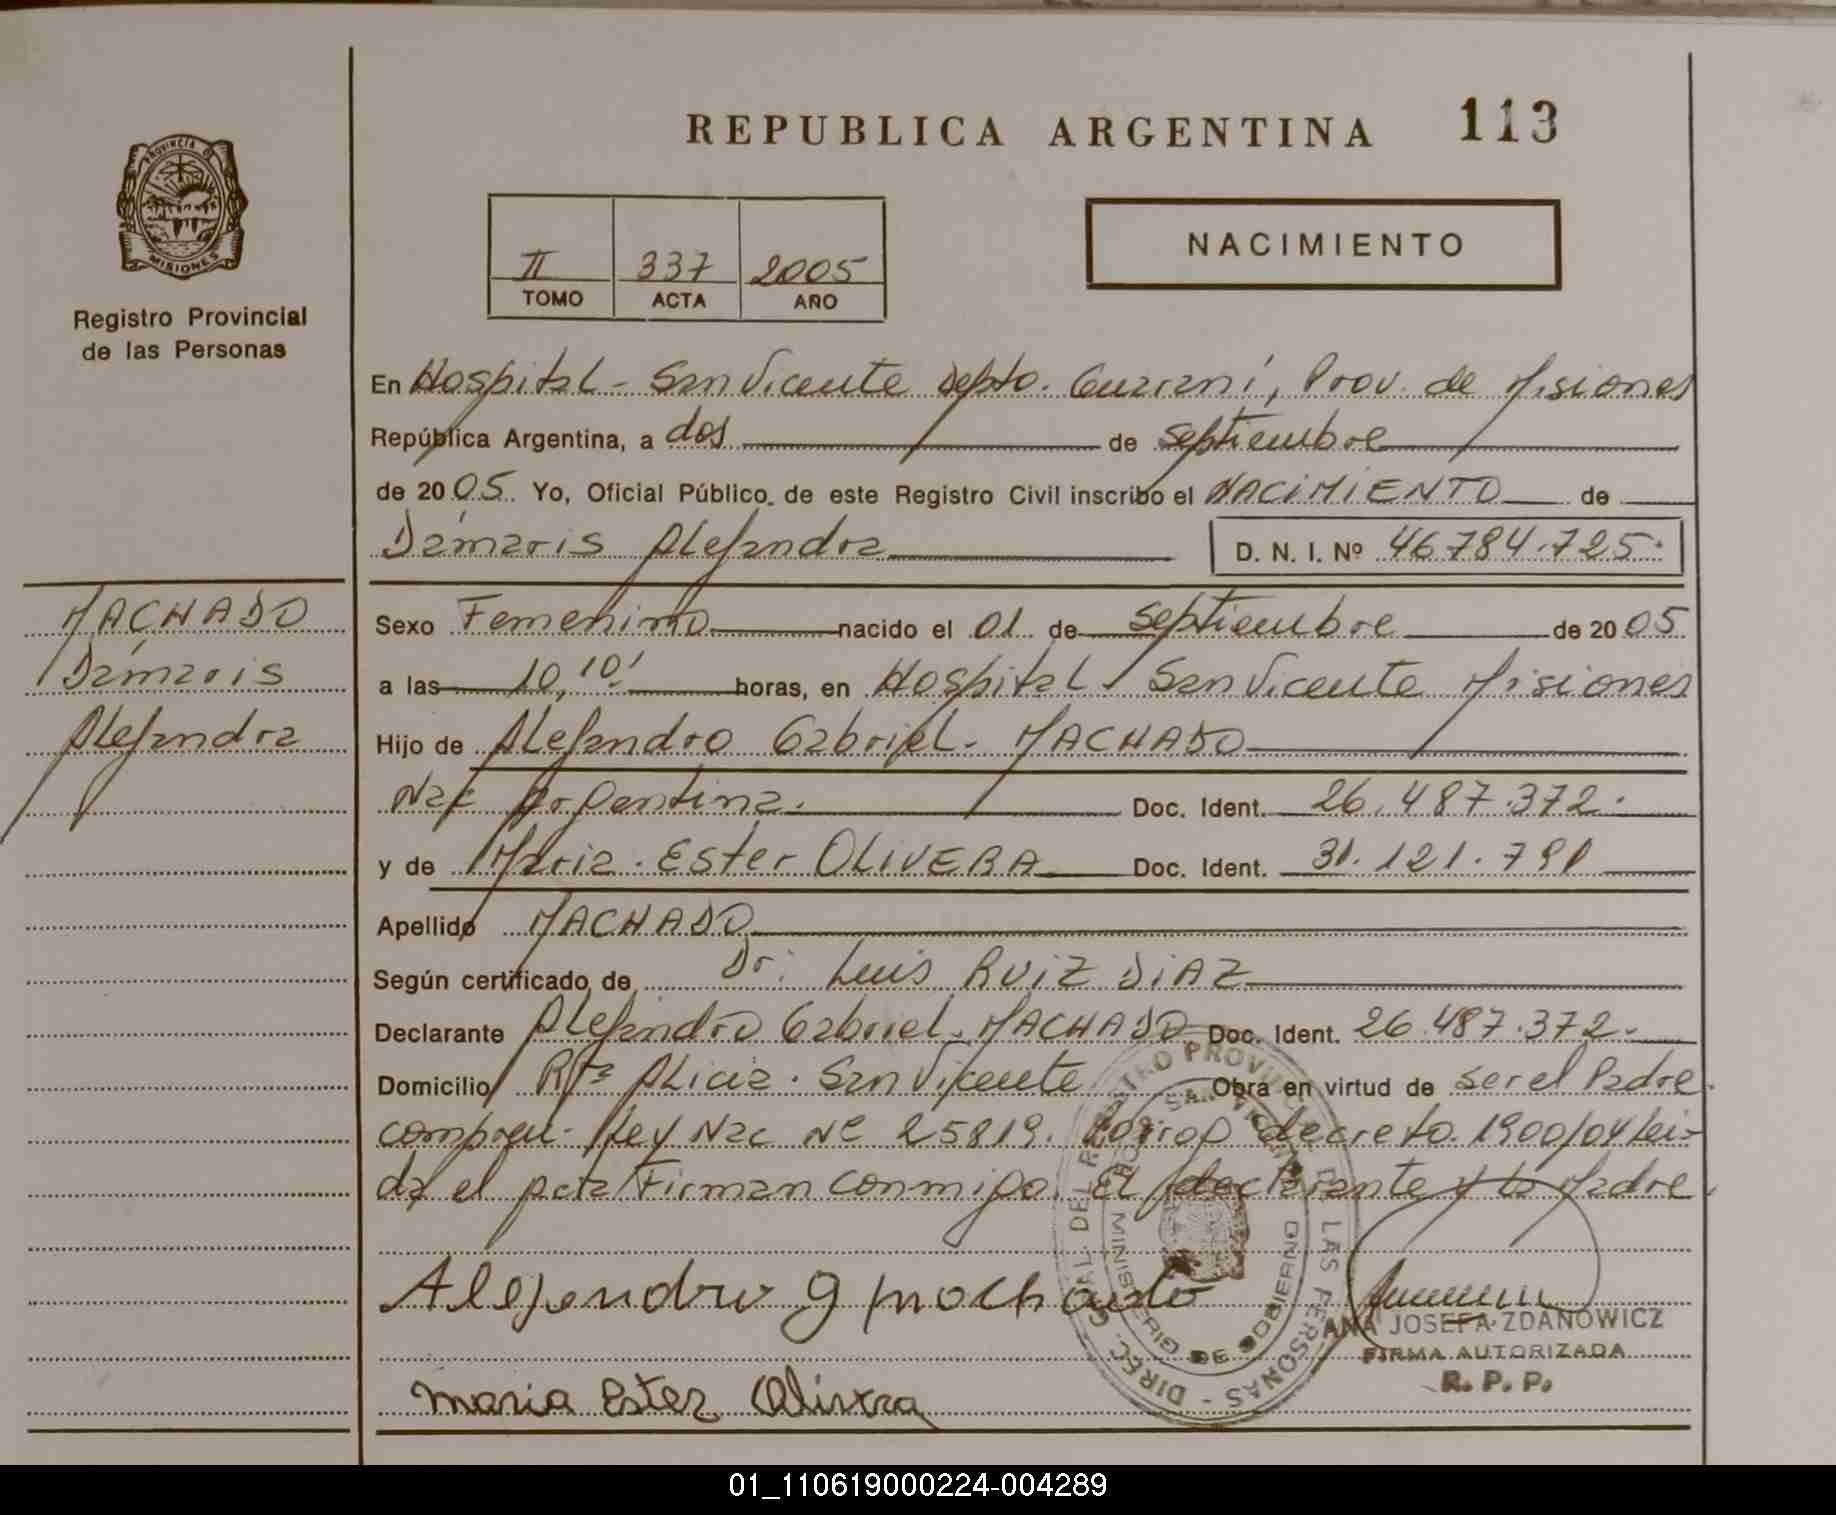 REPUBLICA ARGENTINA 113
PROVINCIA D
MISIONES
Registro Provincial
de las Personas
NACIMIENTO
II 337 2005
TOMO ACTA AÑO
En Hospital - San Vicente Depto. Guaraní, Prov. de Misiones
República Argentina, a dos de Septiembre
de 2005. Yo, Oficial Público de este Registro Civil inscribo el NACIMIENTO de
Dámaris Alejandra D. N. I. Nº 46.784.725.
MACHADO
Dámaris
Alejandra
Sexo Femenino nacido el 01 de Septiembre de 2005
a las 10,10' horas, en Hospital - San Vicente Misiones
Hijo de Alejandro Gabriel - MACHADO
Nac Argentina. Doc. Ident. 26.487.372.
y de Maria - Ester OLIVERA Doc. Ident. 31.121.791
Apellido MACHADO
Según certificado de Dr: Luis RUIZ DIAZ
Declarante Alejandro Gabriel - MACHADO Doc. Ident. 26.487.372.
Domicilio Rta Alicia - San Vicente Obra en virtud de ser el Padre
Ley Nac Nº 25819. decreto 1900/04 lei-
da el acta Firman conmigo. El declarante y la Madre.
Alejandro g machado
Maria Ester Olivera
DIREC. GRAL DEL REGISTRO PROVINCIAL DE LAS PERSONAS -
MINISTERIO DE GOBIERNO
SAN VICENTE
ANA JOSEFA ZDANOWICZ
FIRMA AUTORIZADA
R. P. P.
01_110619000224-004289